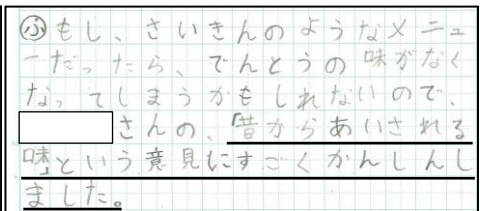 ㋫もし、さいきんのようなメニュ
ーだったら、でんとうの味がなく
なってしまうかもしれないので、
さんの、「昔からあいされる
味」という意見にすごくかんしんし
ました。